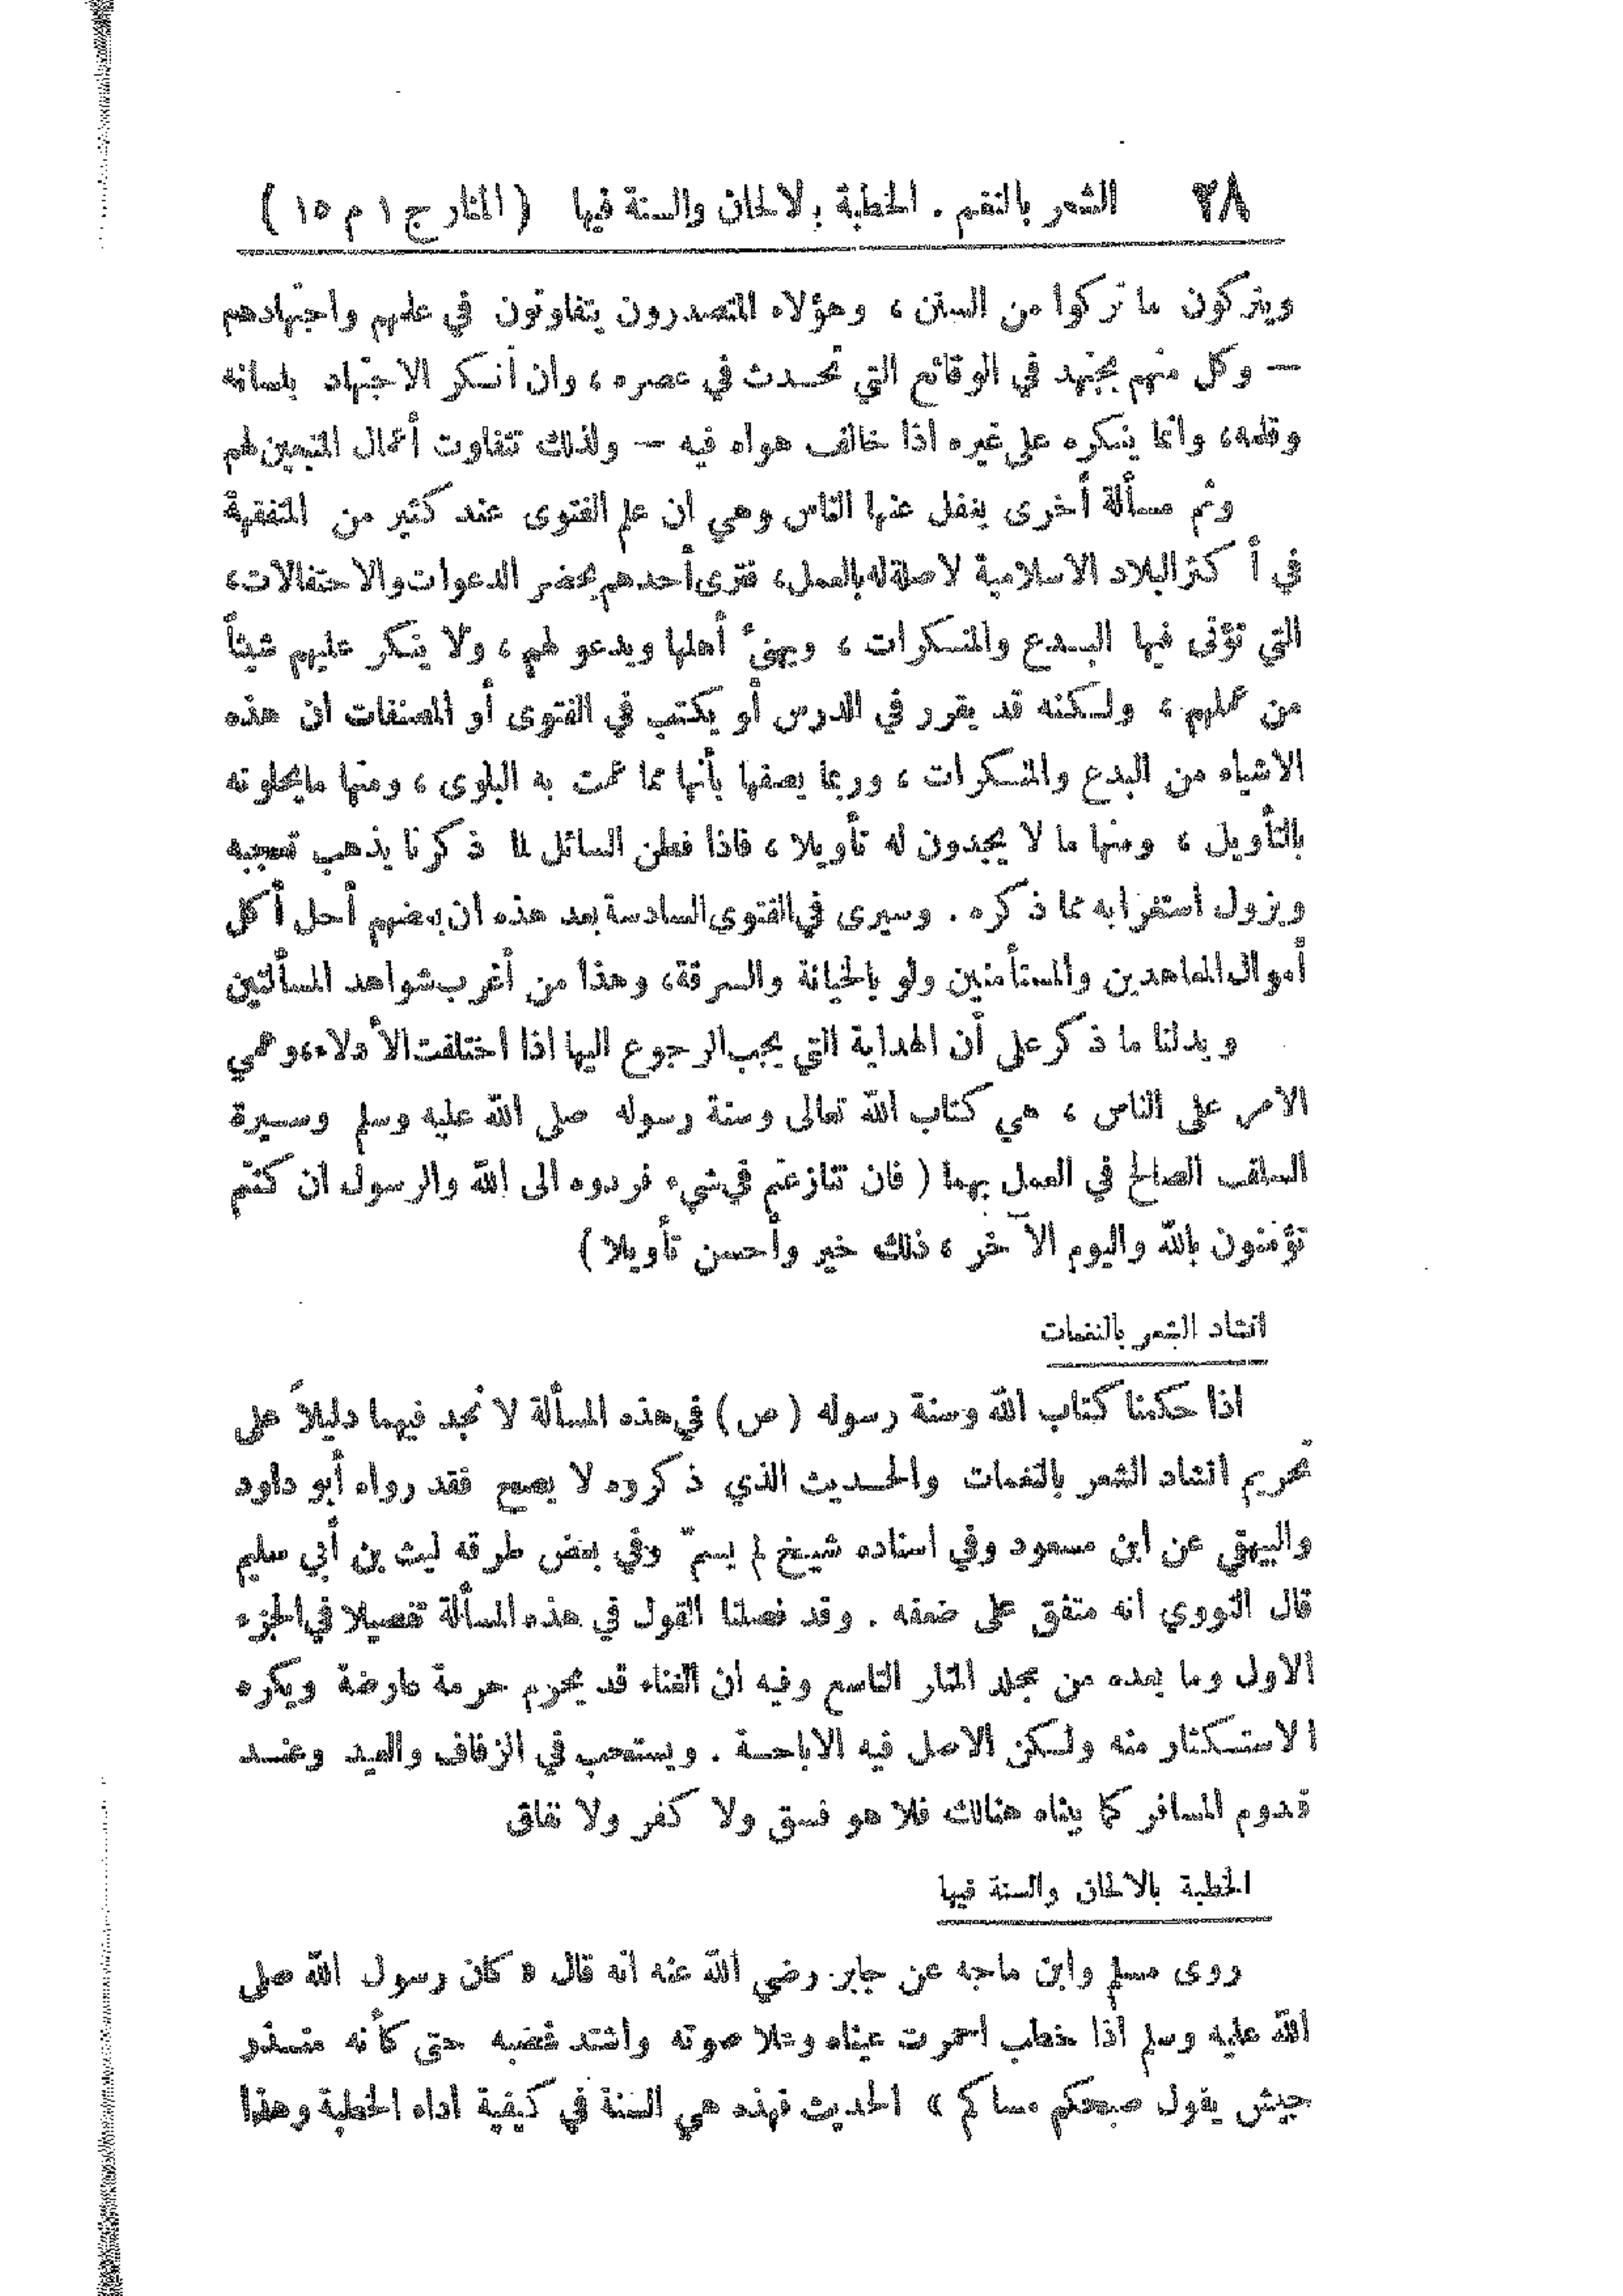 ٢٨ الشعر بالنغم . الخطبة بالالحان والسنة فيها ( المنار ج ١ م ١٥ )
ويتركون ما تركوا من السنن ، وهؤلاء المتصدرون يتفاوتون في علمهم واجتهادهم
— وكل منهم يجتهد في الوقائع التي تحدث في عصره ، وان أنكر الاجتهاد بلسانه
وقلمه، وانما ينكره على غيره اذا خالف هواه فيه — ولذلك تتفاوت أعمال المتبعين لهم
وثم مسألة أخرى يغفل عنها الناس وهي ان علم الفتوى عند كثير من المتفقهة
في أكثر البلاد الاسلامية لاصلة له بالعمل، فترى أحدهم يحضر الدعوات والاحتفالات،
التي تؤتى فيها البدع والمنكرات ، ويهنئ أهلها ويدعو لهم ، ولا ينكر عليهم شيئاً
من عملهم ، ولكنه قد يقرر في الدرس أو يكتب في الفتوى أو المصنفات ان هذه
الاشياء من البدع والمنكرات ، وربما يصفها بأنها مما عمت به البلوى ، ومنها مايحلونه
بالتأويل ، ومنها ما لا يجدون له تأويلا ، فاذا فطن السائل لما ذكرنا يذهب تعجبه
ويزول استغرابه مما ذكره . وسيرى في الفتوى السادسة بعد هذه ان بعضهم أحل أكل
أموال المعاهدين والمستأمنين ولو بالخيانة والسرقة، وهذا من أغرب شواهد المسألتين
ويدلنا ما ذكر على أن الهداية التي يجب الرجوع اليها اذا اختلفت الأدلاء، وعمي
الامر على الناس ، هي كتاب الله تعالى وسنة رسوله صلى الله عليه وسلم وسيرة
السلف الصالح في العمل بهما ( فان تنازعتم في شيء فردوه الى الله والرسول ان كنتم
تؤمنون بالله واليوم الآخر ، ذلك خير وأحسن تأويلا )
انشاد الشعر بالنغمات
اذا حكمنا كتاب الله وسنة رسوله ( ص ) في هذه المسألة لا نجد فيهما دليلاً على
تحريم انشاد الشعر بالنغمات والحديث الذي ذكروه لا يصح فقد رواه أبو داود
والبيهقي عن ابن مسعود وفي اسناده شيخ لم يسمّ وفي بعض طرقه ليث بن أبي سليم
قال النووي انه متفق على ضعفه . وقد فصلنا القول في هذه المسألة تفصيلا في الجزء
الاول وما بعده من مجلد المنار التاسع وفيه ان الغناء قد يحرم حرمة عارضة ويكره
الاستكثار منه ولكن الاصل فيه الاباحة . ويستحب في الزفاف والعيد وعند
قدوم المسافر كما بيناه هنالك فلا هو فسق ولا كفر ولا نفاق
الخطبة بالالحان والسنة فيها
روى مسلم وابن ماجه عن جابر رضي الله عنه انه قال « كان رسول الله صلى
الله عليه وسلم اذا خطب احمرت عيناه وعلا صوته واشتد غضبه حتى كأنه منذر
جيش يقول صبحكم مساكم » الحديث فهذه هي السنة في كيفية اداء الخطبة وهذا